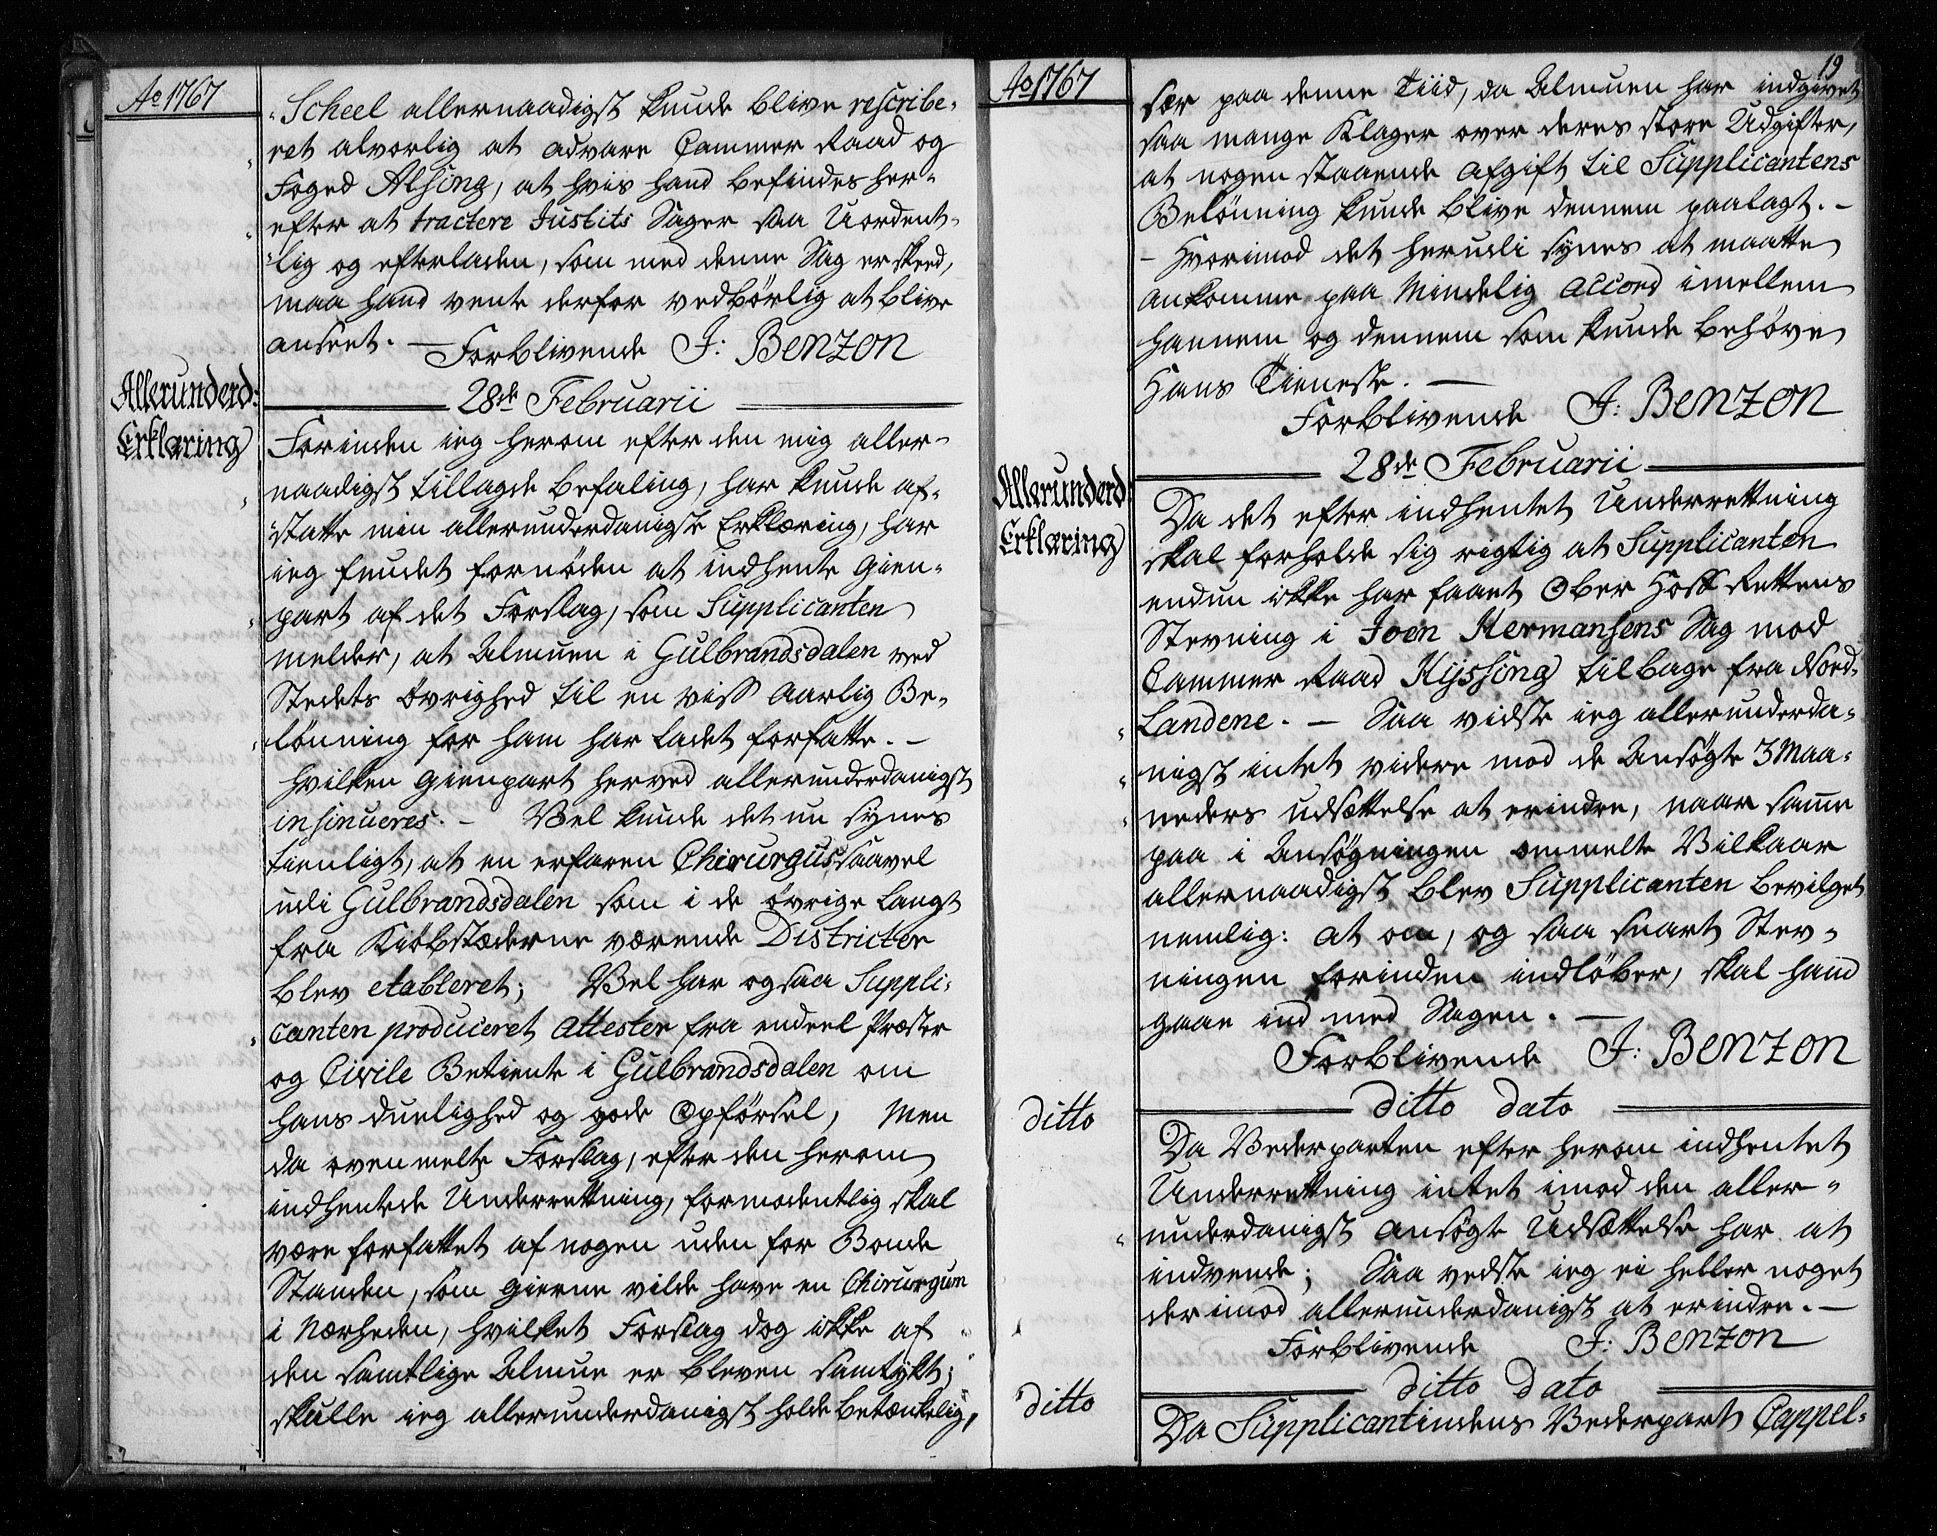 Ao 1767
Scheel allernaadigst kunde blive rescribe-
ret alvorlig at advare Cammer Raad og
Foged Alsing, at hvis hand befindes her-
efter at tractere Justits Sager saa Uordent-
lig og efterladen, som med denne Sag er skeed,
maa hand vente derfor vedbörlig at blive
anseet. — Forblivende J: Benzon
28de Februarii
Allerunderd:
Erklæring
Forinden ieg herom efter den mig aller-
naadigst tillagde befaling, har kunde af-
statte min allerunderdanigste Erklæring, har
ieg fundet fornöden at indhente Gien-
part af det Forslag, som Supplicanten
melder, at Almuen i Gulbrandsdalen ved
Stedets Övrighed til en viss Aarlig Be-
lönning for ham har ladet forfatte. —
hvilken Gienpart herved allerunderdanigst
insinueres. — Vel kunde det nu synes
tienligt, at en erfaren Chirurgus, saavel
udi Gulbrandsdalen som i de övrige langt
fra Kiöbstæderne værende Districter
blev etableret; Vel har ogsaa Suppli-
canten produceret Attester fra endeel Præster
og Civile Betiente i Gulbrandsdalen om
hans duelighed og gode Opförsel, Men
da ovenmelte Forslag, efter den herom
indhentede Underrettning, formodentlig skal
være forfattet af nogen uden for Bonde
Standen, som gierne vilde have en Chirurgum
i Nærheden, hvilket Forslag dog ikke af
den samtlige Almue er bleven samtykt;
skulle ieg allerunderdanigst holde betænkelig,
19
Ao 1767
sær paa denne Tiid, da Almuen har indgivet
saa mange Klager over deres store Udgifter,
at nogen staaende Afgift til Supplicantens
Belönning kunde blive dennem paalagt. —
— Hvorimod det herudi synes at maatte
ankomme paa Mindelig Accord imellem
hannem og dennem som kunde behöve
Hans Tieneste. —
Forblivende J: Benzon
28de Februarii
Allerunderd
Erklæring
Da det efter indhentet Underrettning
skal forholde sig rigtig at Supplicanten
endnu ikke har faaet Ober Hoff Rettens
Stevning i Joen Hermansens Sag mod
Cammer Raad Hyssing tilbage fra Nord-
Landene. — Saa vidste ieg allerunderda-
nigst intet videre mod de Ansögte 3 Maa-
neders udsættelse at erindre, naar samme
paa i Ansögningen ommelte Vilkaar
allernaadigst blev Supplicanten bevilget
nemlig: at om, og saa snart Stev-
ningen forinden indlöber, skal hand
gaae ind med Sagen. —
Forblivende J: Benzon
ditto dato
ditto
Da Vederparten efter herom indhentet
Underrettning intet imod den aller-
underdanigst ansögte Udsættelse har at
indvende; Saa vedste ieg ei heller noget
derimod allerunderdanigst at erindre. —
Forblivende J: Benzon
ditto dato
ditto
Da Supplicantindens Vederpart Cappel-